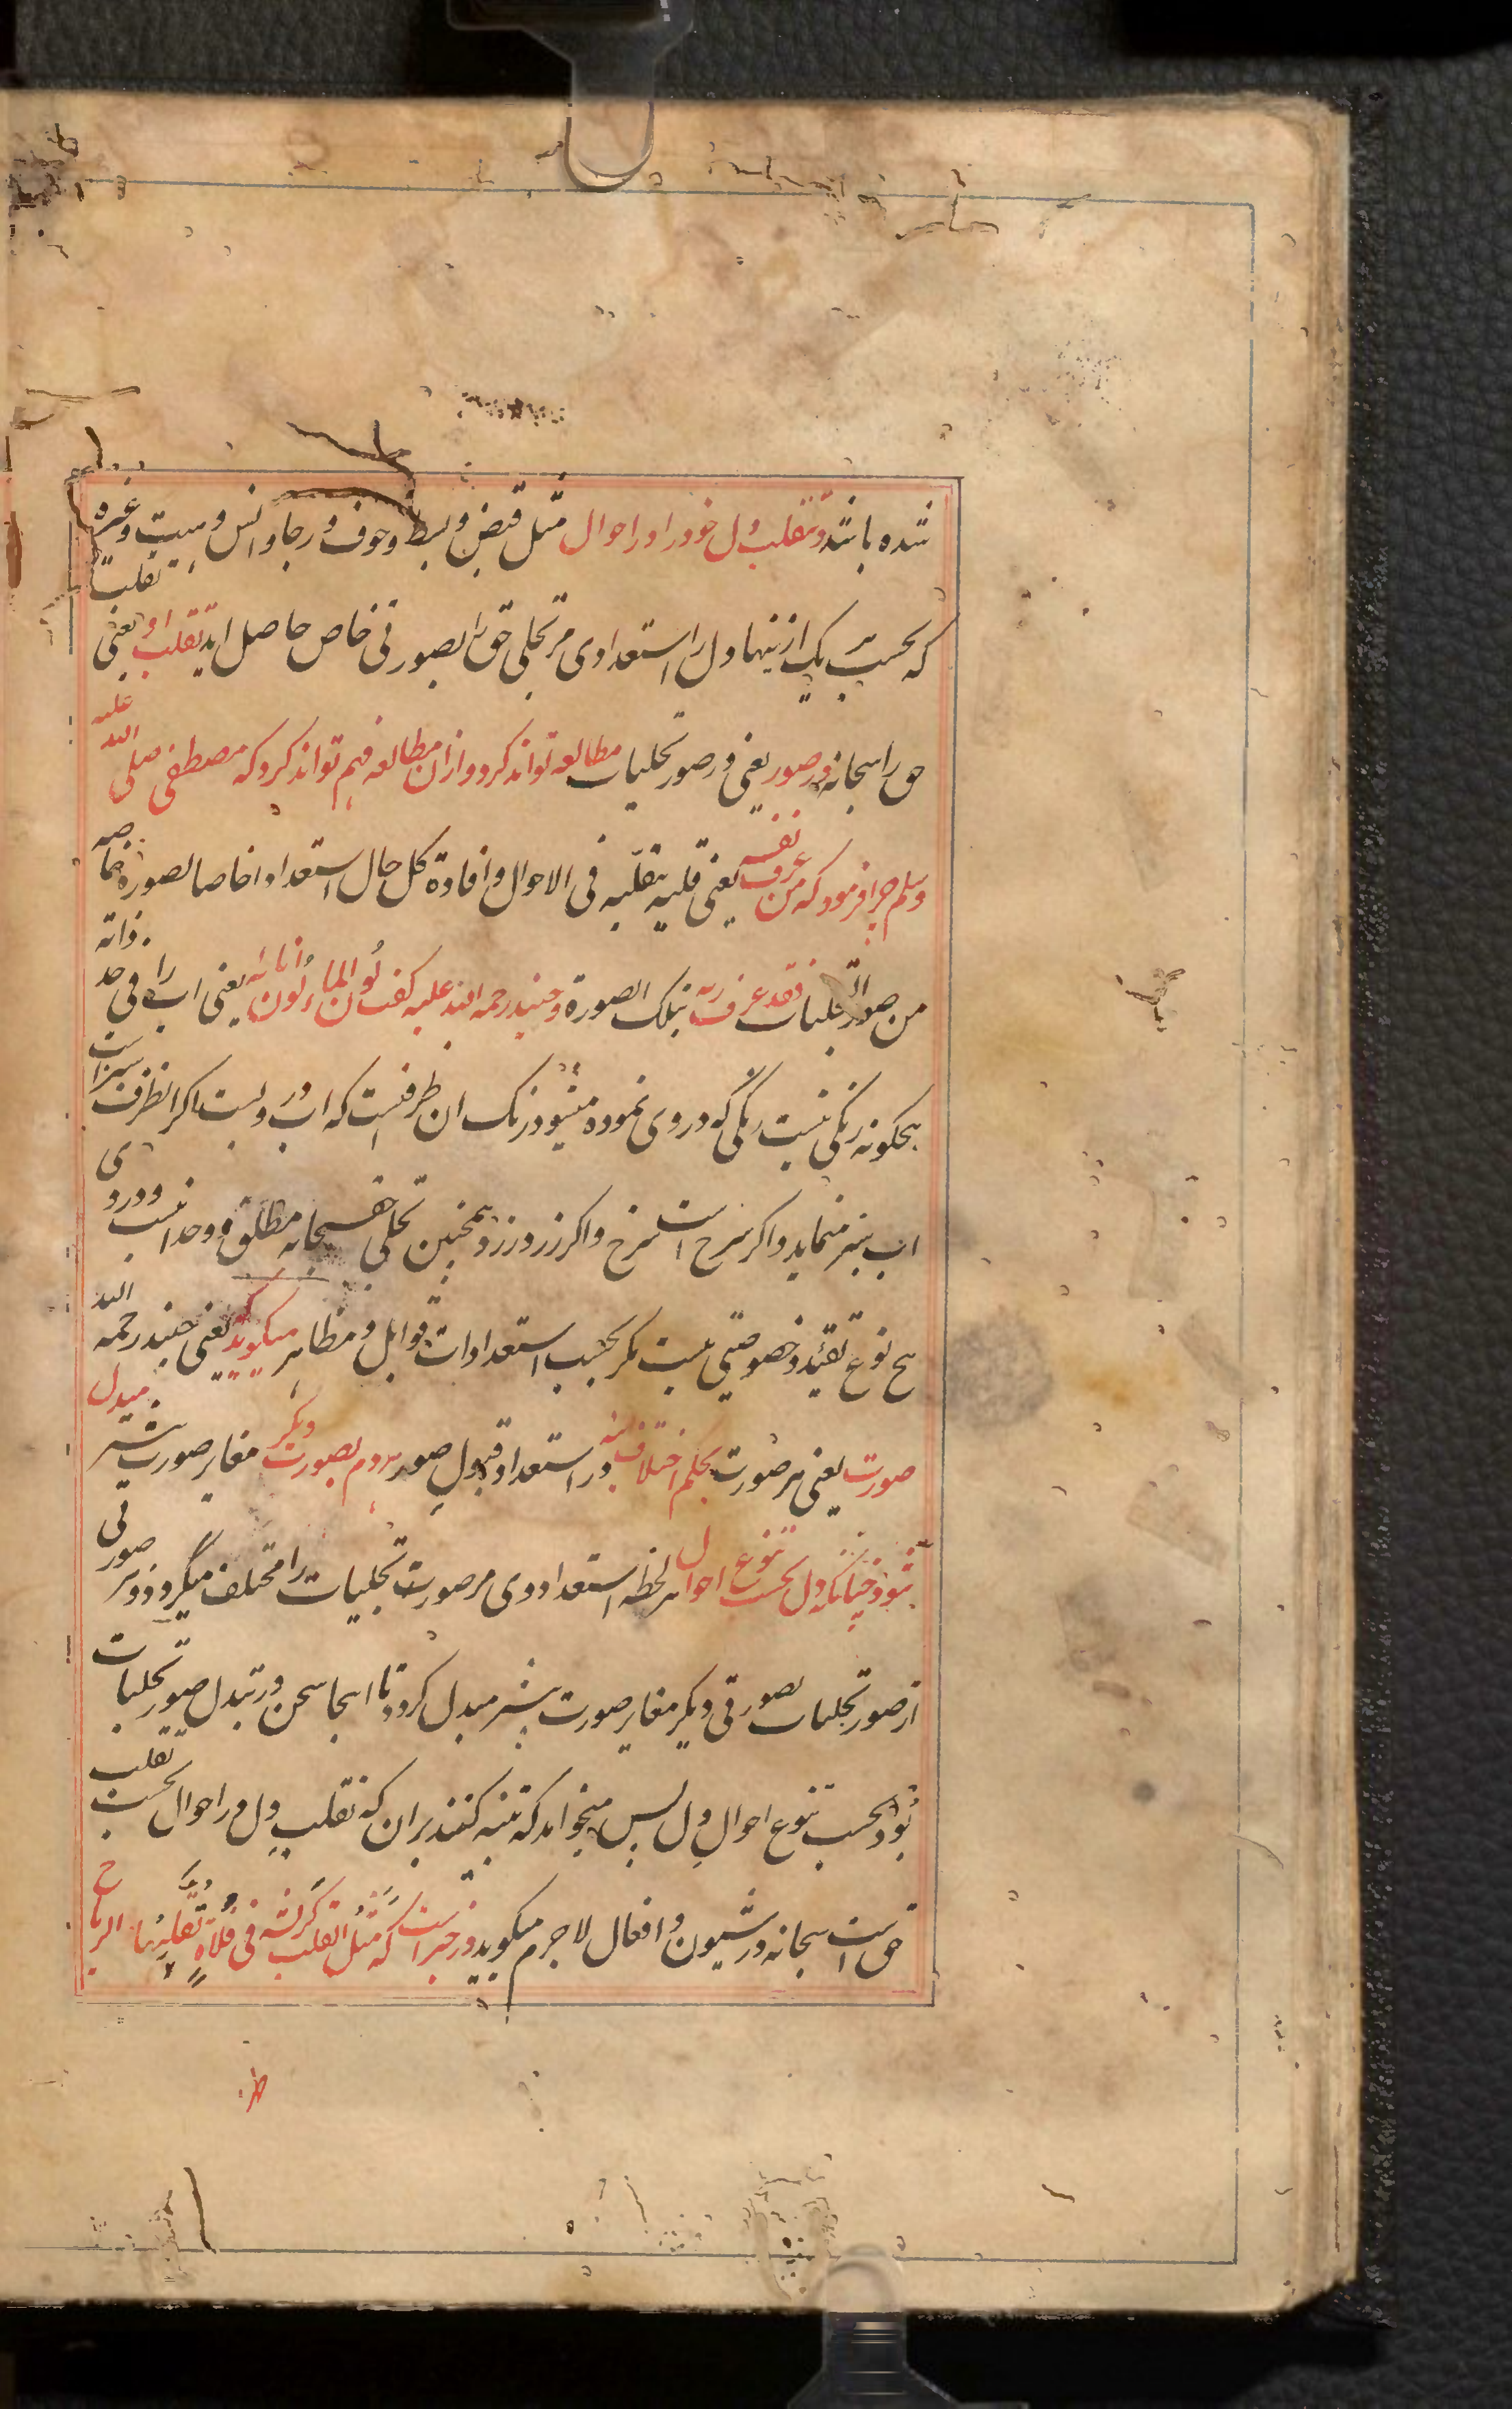 شده باشد و تقلب دل خود را در احوال مثل قبض و بسط و خوف و رجا و انس و هیبت و غیره
که بحسب هر یک از ینها دل را استعدادی مر تجلی حق را بصورتی خاص حاصل اید تقلب او یعنی تقلب
حق را سبحانه در صور یعنی در صور تجلیات مطالعه تواند کرد و ازان مطالعه فهم تواند کرد که مصطفی صلی الله علیه
وسلم چرا فرمود که من عرف نفسه یعنی قلبه بتقلبه فی الاحوال و افادة کل حال استعدادا خاصا لصورة خاصه
من صور التجلیات فقد عرف ربه بتلک الصورة و جنید رحمه الله علیه گفت لون الماء لون انائه یعنی اب را فی حد ذاته
هیچگونه رنگی نیست رنگی که در وی نموده میشود رنک ان ظرفست که اب در وست اکر ان ظرف سبز است
اب سبز مینماید و اکر سرخ است سرخ و اکر زرد زرد همچنین تجلی حق سبحانه مطلق و وحدانیست و در وی
هیچ نوع تقید و خصوصیتی نیست مکر بحسب استعدادات قوابل و مظاهر میکوید که یعنی جنید رحمه الله
صورت یعنی هر صورت بحکم اختلاف آینه در استعداد قبول صور هر دم بصورت دیگر مغایر صورت پیشتر مبدل
شود چنانکه دل بحسب تنوع احوال هر لحظه استعداد وی مر صورت تجلیات را مختلف میگردد و هر صورتی
از صور تجلیات بصورتی دیکر مغایر صورت پیشتر مبدل کردد تا اینجا سخن در تبدل صور تجلیات
بود بحسب تنوع احوال دل پس میخواهد که تنبیه کنند بران که تقلب دل در احوال بحسب تقلب
حق است سبحانه در شیون و افعال لاجرم میکوید در خبر است که مثل القلب کریشة فی فلاة تقلبها الریاح